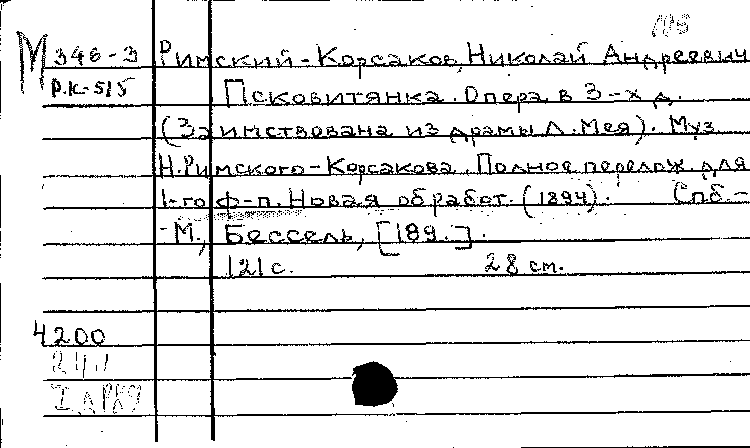 М 346-3 Римский-Корсаков, Николай Андреевич
Р.К-515 Псковитянка. Опера в 3-х д.
(Заимствована из драмы Л. Мея). Муз.
Н. Римского-Корсакова. Полное перелож. для
1-го ф-п. Новая обработ. (1894). Спб.-
-М., Бессель, [189.].
121 с. 28 см.
4200
24.1